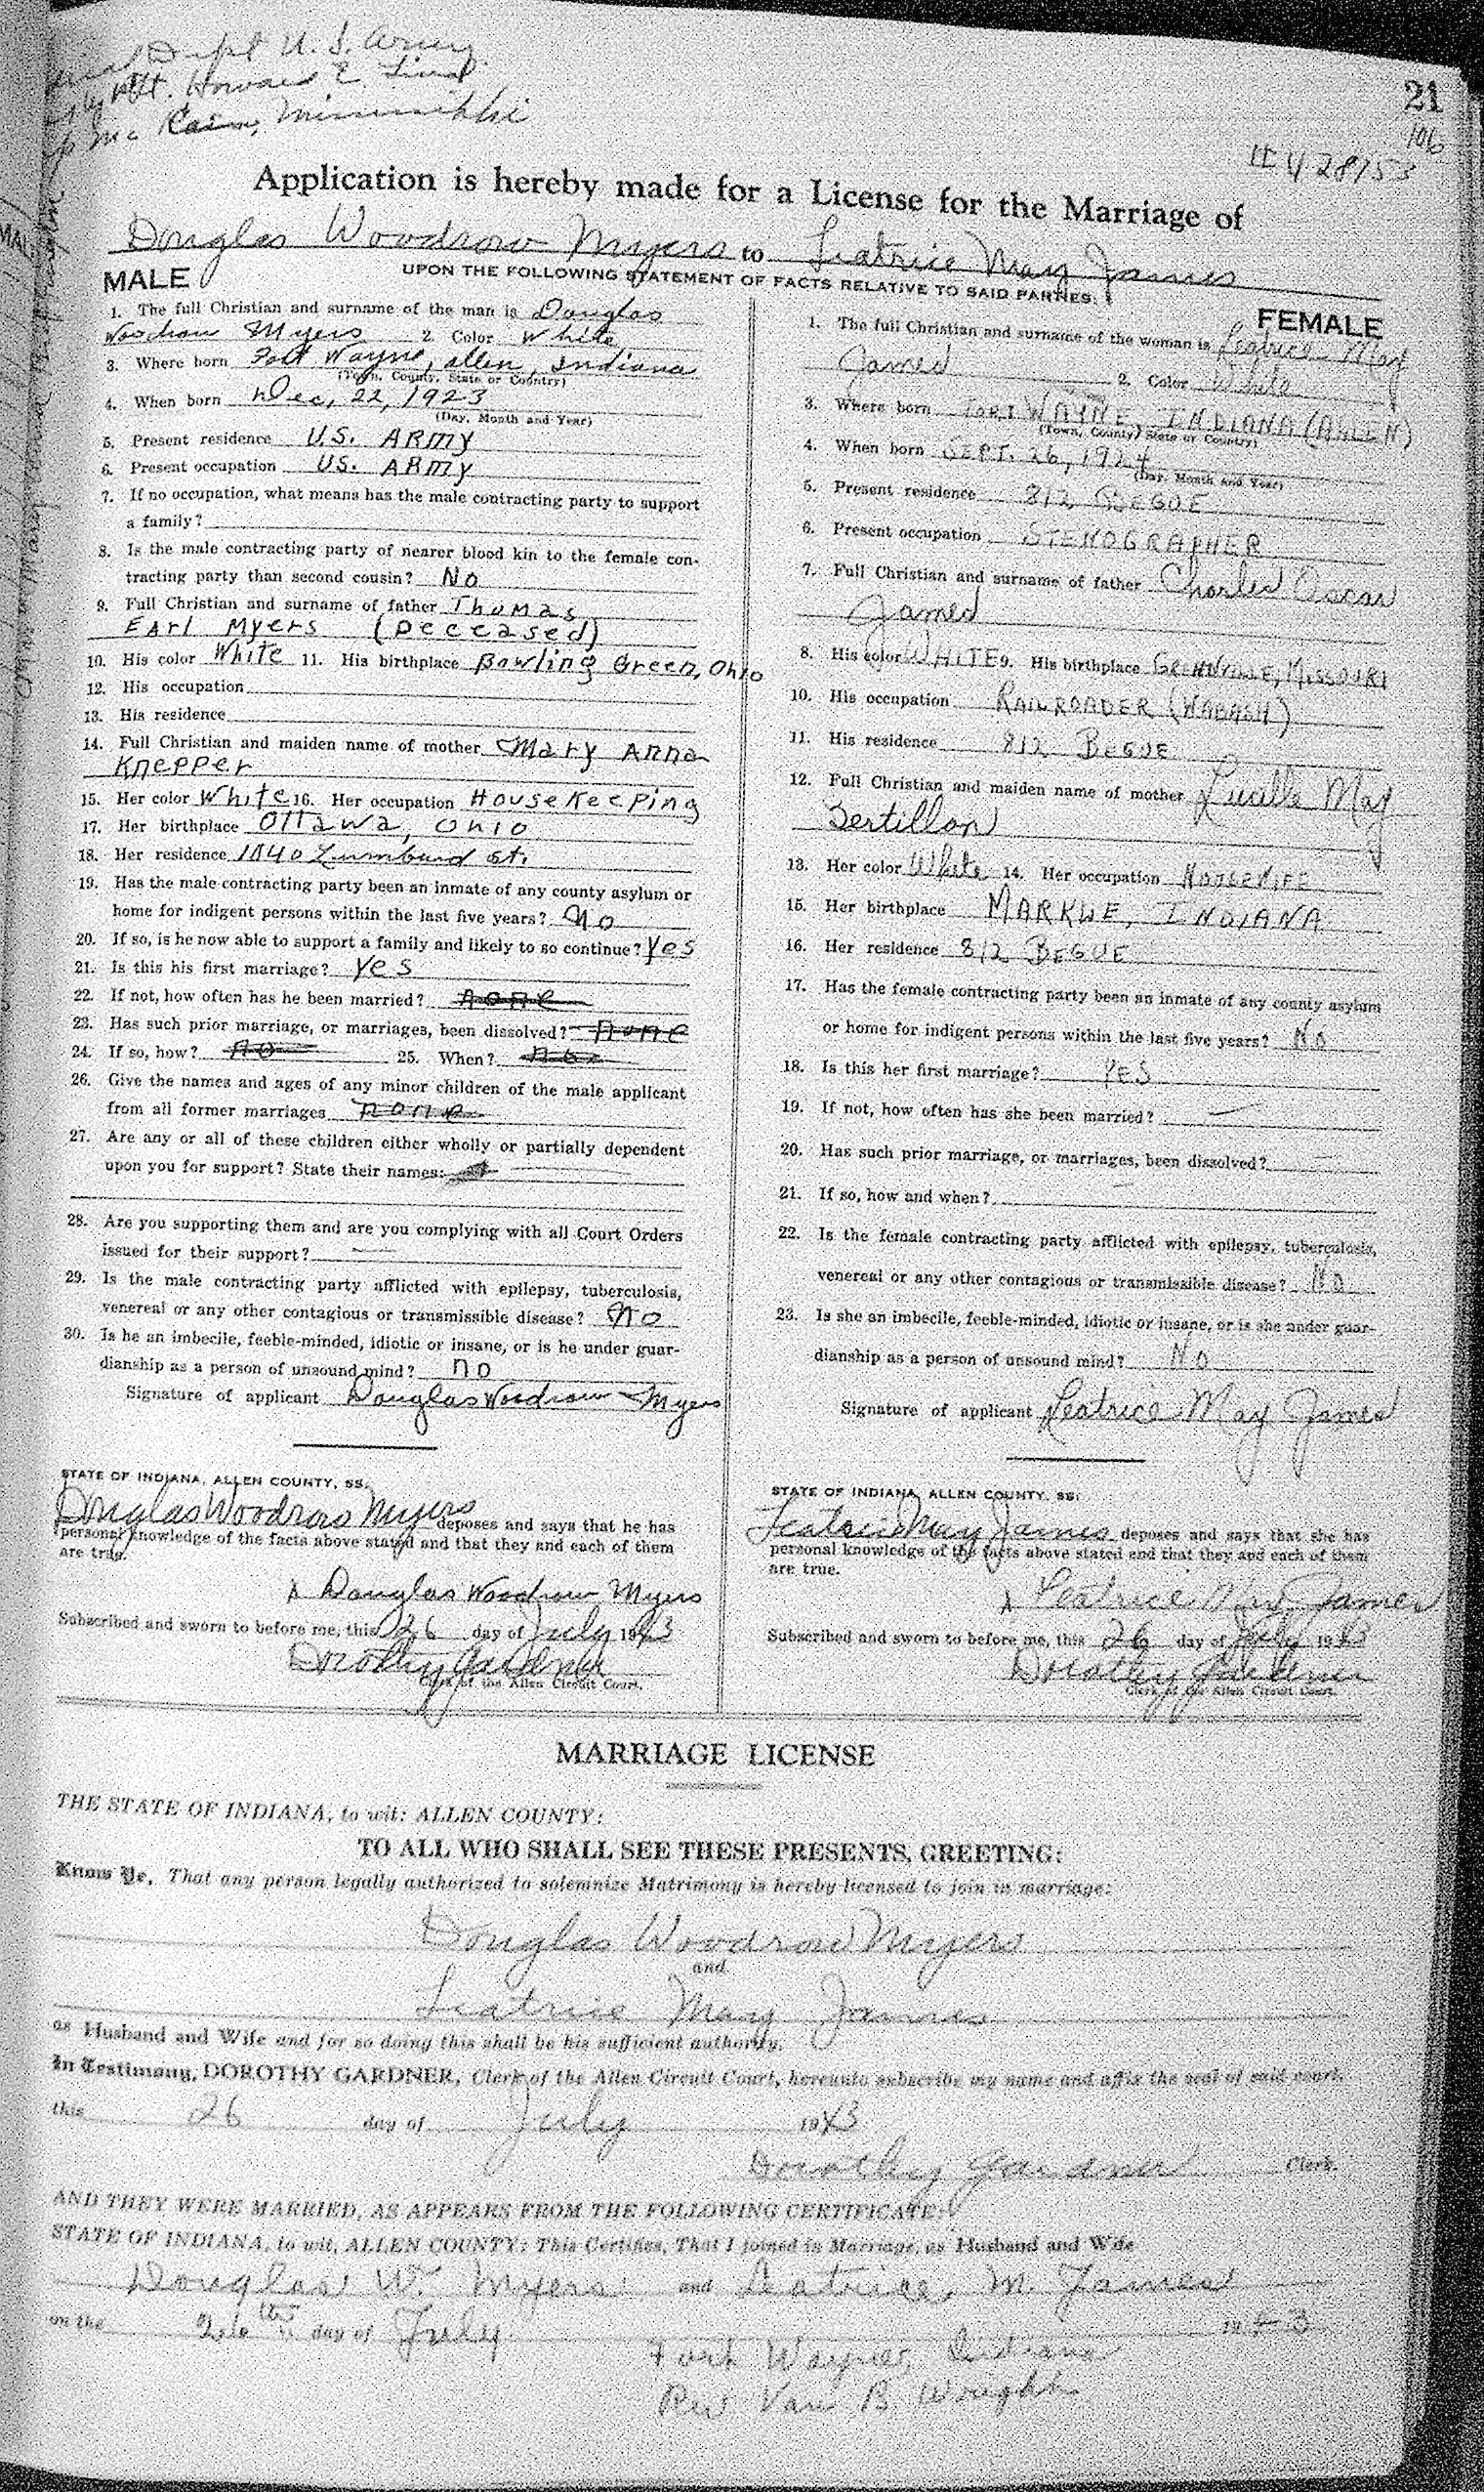 Dept U. S. Army
Howard E.
Mc Cain, Mississippi
21
106
428153
Application is hereby made for a License for the Marriage of
Douglas Woodrow Myers to Leatrice May James
UPON THE FOLLOWING STATEMENT OF FACTS RELATIVE TO SAID PARTIES:
MALE
1. The full Christian and surname of the man is Douglas
Woodrow Myers 2. Color White
3. Where born Fort Wayne, Allen, Indiana
(Town, County, State or Country)
4. When born Dec, 22, 1923
(Day, Month and Year)
5. Present residence U.S. ARMY
6. Present occupation U.S. ARMY
7. If no occupation, what means has the male contracting party to support
a family?
8. Is the male contracting party of nearer blood kin to the female con-
tracting party than second cousin? No
9. Full Christian and surname of father Thomas
Earl Myers (Deceased)
10. His color White 11. His birthplace Bowling Green, Ohio
12. His occupation
13. His residence
14. Full Christian and maiden name of mother Mary Anna
Knepper
15. Her color White 16. Her occupation Housekeeping
17. Her birthplace Ottawa, Ohio
18. Her residence St.
19. Has the male contracting party been an inmate of any county asylum or
home for indigent persons within the last five years? No
20. If so, is he now able to support a family and likely to so continue? Yes
21. Is this his first marriage? Yes
22. If not, how often has he been married? none
23. Has such prior marriage, or marriages, been dissolved? none
24. If so, how? no 25. When?
26. Give the names and ages of any minor children of the male applicant
from all former marriages none
27. Are any or all of these children either wholly or partially dependent
upon you for support? State their names:
28. Are you supporting them and are you complying with all Court Orders
issued for their support?
29. Is the male contracting party afflicted with epilepsy, tuberculosis,
venereal or any other contagious or transmissible disease? No
30. Is he an imbecile, feeble-minded, idiotic or insane, or is he under guar-
dianship as a person of unsound mind? no
Signature of applicant Douglas Woodrow Myers
STATE OF INDIANA, ALLEN COUNTY, SS:
Douglas Woodrow Myers deposes and says that he has
personal knowledge of the facts above stated and that they and each of them
are true.
X Douglas Woodrow Myers
Subscribed and sworn to before me, this 26 day of July 1943
Dorothy Gardner
Clerk of the Allen Circuit Court.
FEMALE
1. The full Christian and surname of the woman is Leatrice May
James 2. Color White
3. Where born FORT WAYNE INDIANA (ALLEN)
(Town, County, State or Country)
4. When born SEPT. 26, 1924
(Day, Month and Year)
5. Present residence 812 BEGUE
6. Present occupation STENOGRAPHER
7. Full Christian and surname of father Charles Oscar
James
8. His color WHITE 9. His birthplace GREENVILLE, MISSOURI
10. His occupation RAILROADER (WABASH)
11. His residence 812 BEGUE
12. Full Christian and maiden name of mother Lucille May
Sertillon
13. Her color White 14. Her occupation HOUSEWIFE
15. Her birthplace MARKLE, INDIANA
16. Her residence 812 BEGUE
17. Has the female contracting party been an inmate of any county asylum
or home for indigent persons within the last five years? No
18. Is this her first marriage? YES
19. If not, how often has she been married? —
20. Has such prior marriage, or marriages, been dissolved?
21. If so, how and when?
22. Is the female contracting party afflicted with epilepsy, tuberculosis,
venereal or any other contagious or transmissible disease? No
23. Is she an imbecile, feeble-minded, idiotic or insane, or is she under guar-
dianship as a person of unsound mind? No
Signature of applicant Leatrice May James
STATE OF INDIANA, ALLEN COUNTY, SS:
Leatrice May James deposes and says that she has
personal knowledge of the facts above stated and that they and each of them
are true.
X Leatrice May James
Subscribed and sworn to before me, this 26 day of July 1943
Dorothy Gardner
Clerk of the Allen Circuit Court.
MARRIAGE LICENSE
THE STATE OF INDIANA, to wit: ALLEN COUNTY:
TO ALL WHO SHALL SEE THESE PRESENTS, GREETING:
Know Ye, That any person legally authorized to solemnize Matrimony is hereby licensed to join in marriage:
Douglas Woodrow Myers
and
Leatrice May James
as Husband and Wife and for so doing this shall be his sufficient authority.
In Testimony, DOROTHY GARDNER, Clerk of the Allen Circuit Court, hereunto subscribe my name and affix the seal of said court,
this 26 day of July 1943
Dorothy Gardner Clerk.
AND THEY WERE MARRIED, AS APPEARS FROM THE FOLLOWING CERTIFICATE:
STATE OF INDIANA, to wit, ALLEN COUNTY: This Certifies, That I joined in Marriage, as Husband and Wife
Douglas W. Myers and Leatrice M. James
on the 26th day of July 1943
Fort Wayne, Indiana
Rev Van B. Wright